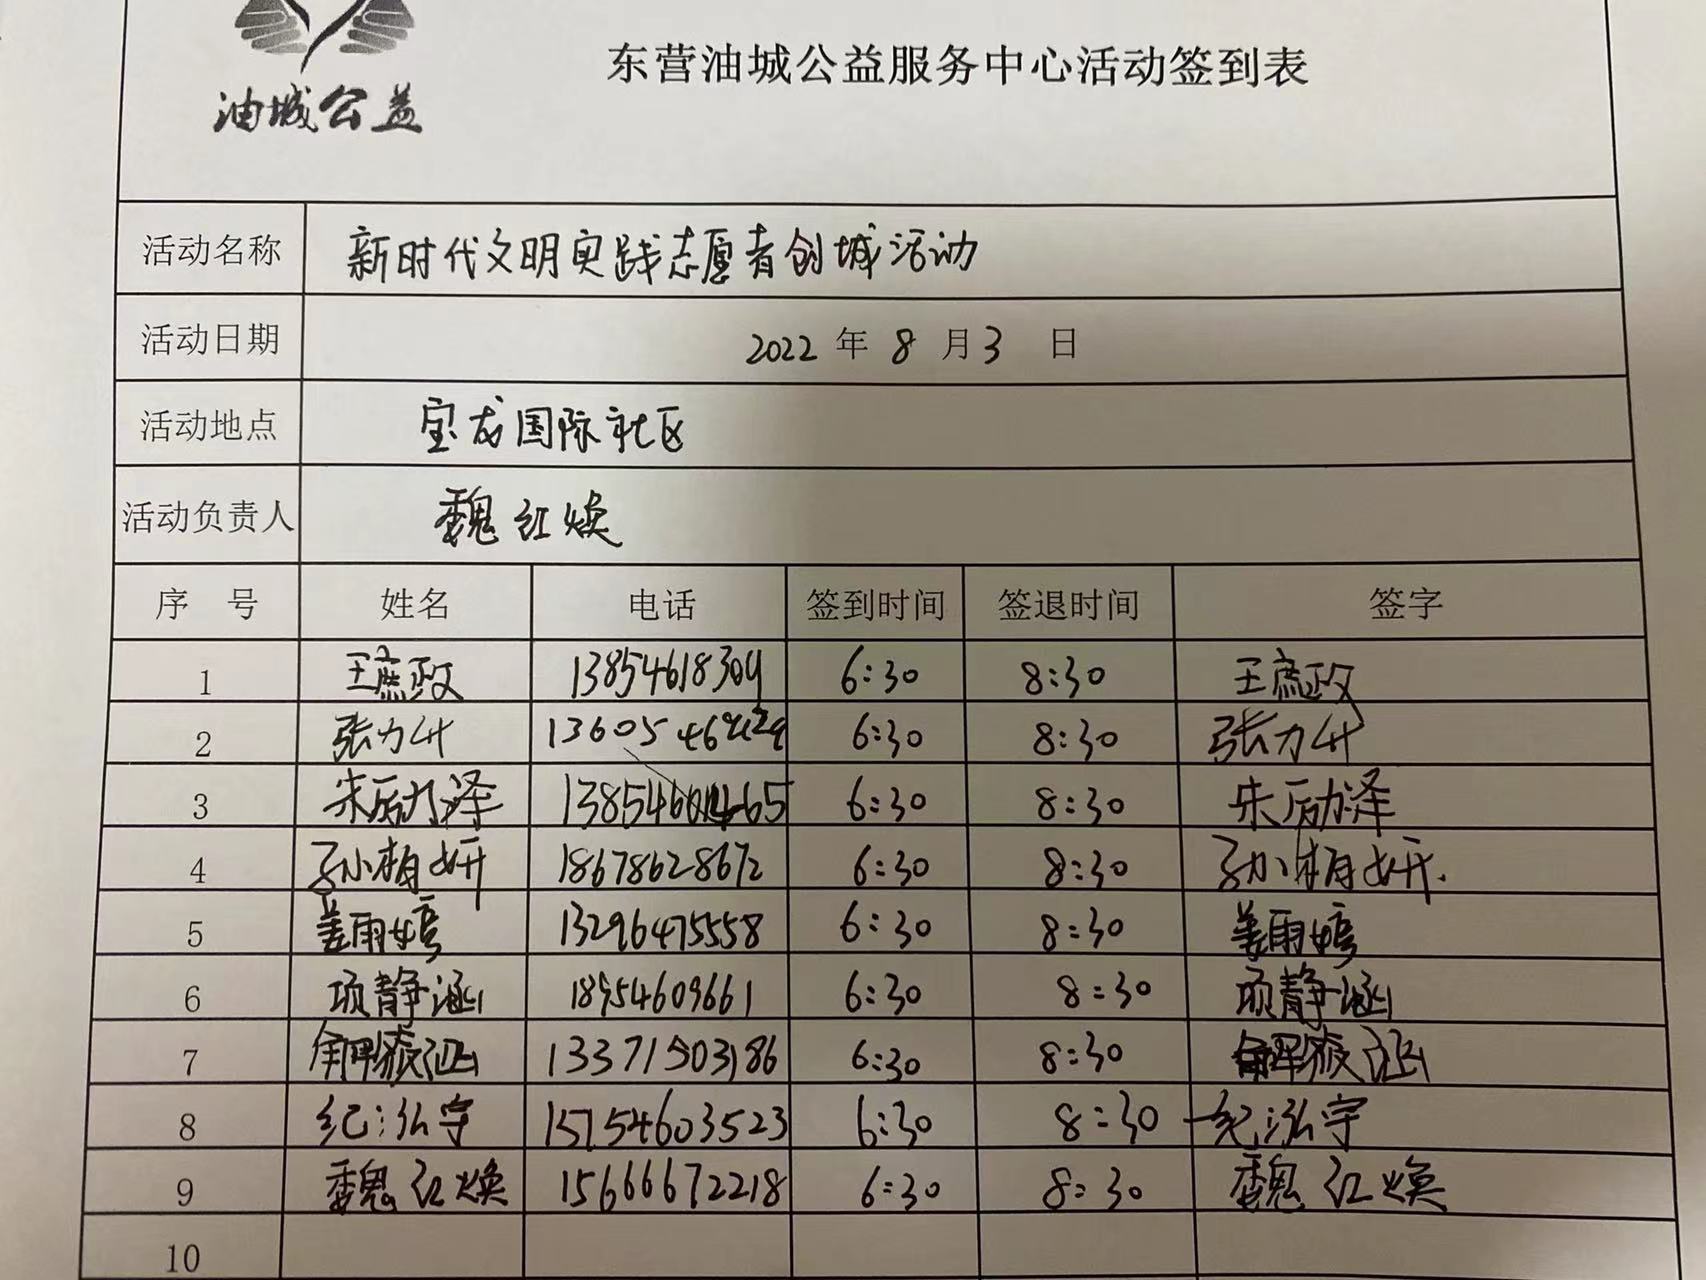 油城公益
东营油城公益服务中心活动签到表
活动名称 新时代文明实践志愿者创城活动
活动日期 2022 年 8 月 3 日
活动地点 宝龙国际社区
活动负责人 魏红焕
序 号 姓名 电话 签到时间 签退时间 签字
1 王庶政 13854618304 6:30 8:30 王庶政
2 张力升 6:30 8:30 张力升
3 朱励泽 6:30 8:30 朱励泽
4 孙楠妍 18678628672 6:30 8:30 孙楠妍
5 姜雨婷 13296475558 6:30 8:30 姜雨婷
6 项静涵 18954609661 6:30 8:30 项静涵
7 13371503186 6:30 8:30
8 纪泓宇 15754603523 6:30 8:30 纪泓宇
9 魏红焕 15666672218 6:30 8:30 魏红焕
10